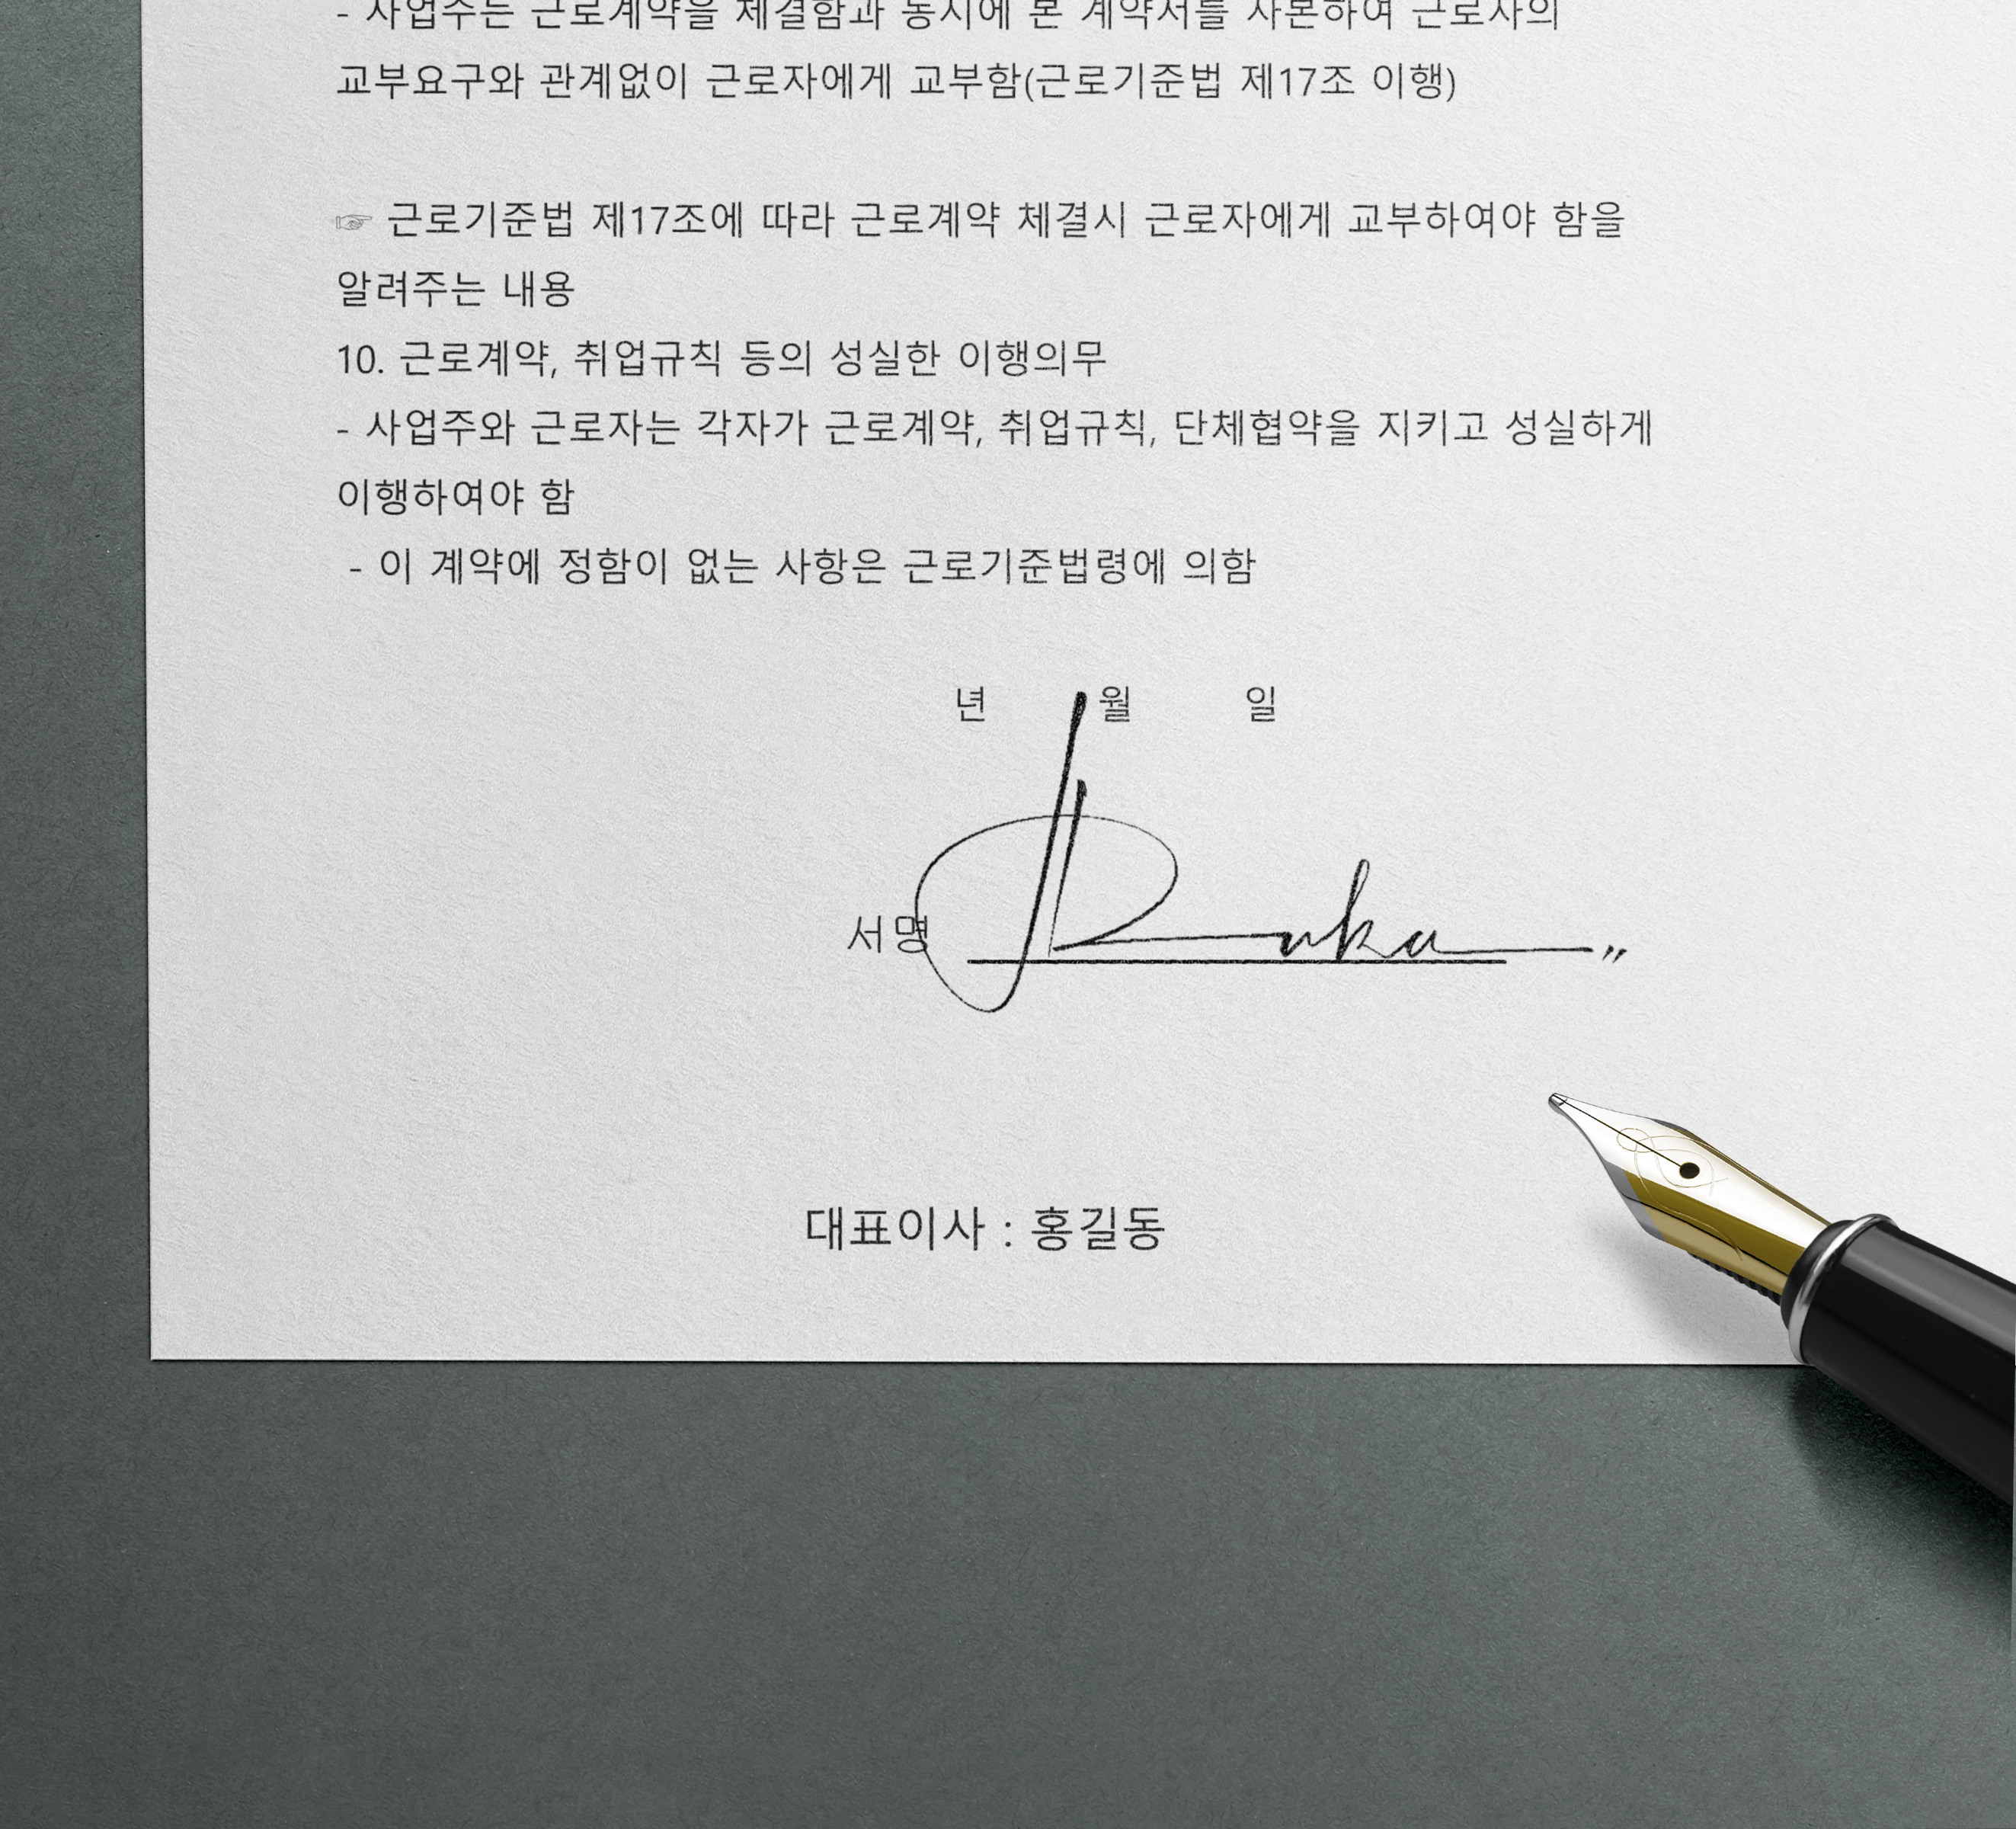 - 사업주는 근로계약을 체결함과 동시에 본 계약서를 사본하여 근로자의
교부요구와 관계없이 근로자에게 교부함(근로기준법 제17조 이행)
☞ 근로기준법 제17조에 따라 근로계약 체결시 근로자에게 교부하여야 함을
알려주는 내용
10. 근로계약, 취업규칙 등의 성실한 이행의무
- 사업주와 근로자는 각자가 근로계약, 취업규칙, 단체협약을 지키고 성실하게
이행하여야 함
- 이 계약에 정함이 없는 사항은 근로기준법령에 의함
년 월 일
서명
대표이사 : 홍길동